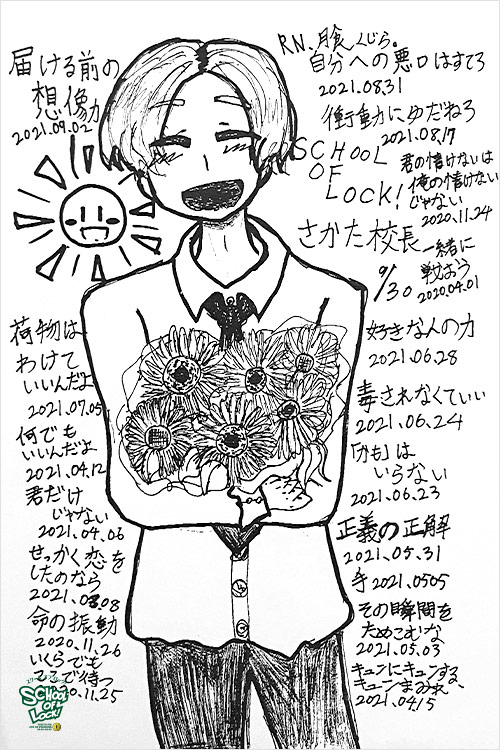 届ける前の
想像力
2021.09.02
RN.月食くじら。
自分への悪口はすてろ
2021.08.31
衝動にゆだねろ
2021.08.17
SCHOOL
OF
LOCK!
君の情けないは
俺の情けない
じゃない
2020.11.24
さかた校長
一緒に
戦おう
2020.04.01
9/30
荷物は
わけて
いいんだよ
2021.07.05
何でも
いいんだよ
2021.04.12
君だけ
じゃない
2021.04.06
せっかく恋を
したのなら
2021.03.08
命の振動
2020.11.26
いくらでも
ここで待つ
2020.11.25
好きな人の力
2021.06.28
毒されなくていい
2021.06.24
「かも」は
いらない
2021.06.23
正義の正解
2021.05.31
手 2021.0505
その瞬間を
ためこむな
2021.05.03
キュンにキュンする
キュンまみれ、
2021.04.15
SCHOOL
OF
LOCK!